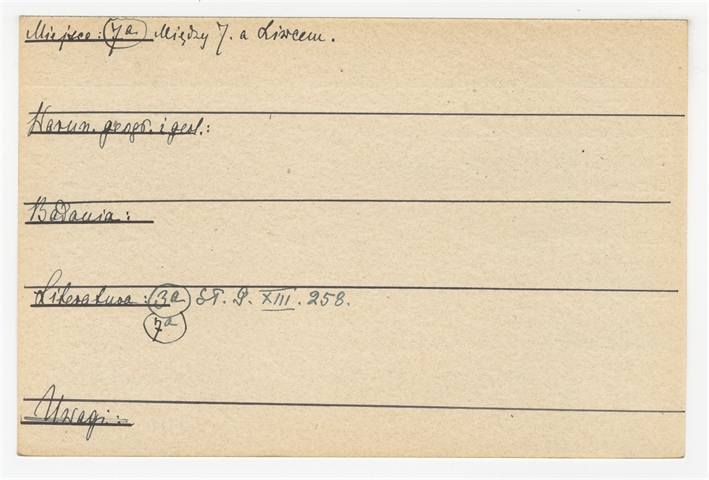 Miejsce: 7a Między J. a Liwcem.
Warun. geogr. i geol.:
Badania:
Literatura: 3a St. G. XIII. 258.
7a
Uwagi: